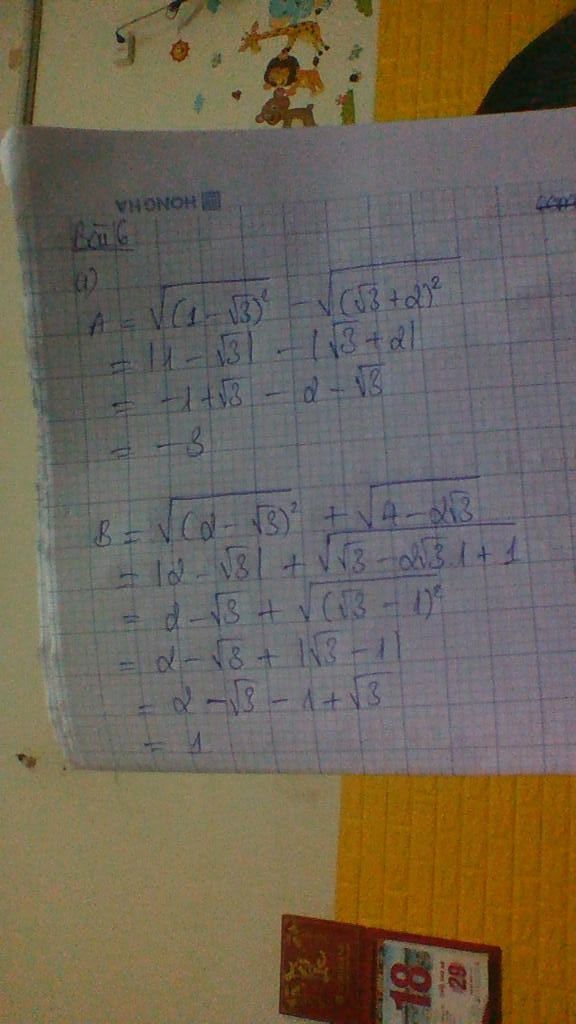 HONGHA
Bài 6
a)
A = √(1 - √3)² - √(√3 + 2)²
= |1 - √3| - |√3 + 2|
= -1 + √3 - 2 - √3
= -3
B = √(2 - √3)² + √4 - 2√3
= |2 - √3| + √√3 - 2√3.1 + 1
= 2 - √3 + √(√3 - 1)²
= 2 - √3 + |√3 - 1|
= 2 - √3 - 1 + √3
= 1
18
29